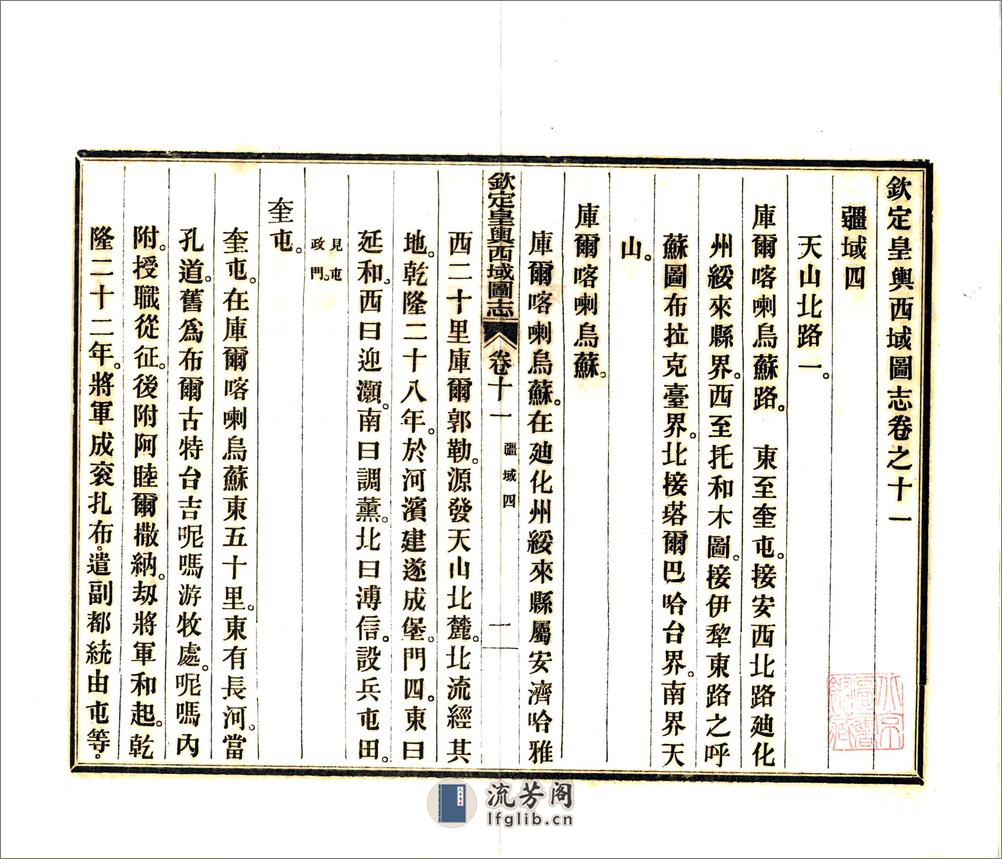 欽定皇輿西域圖志卷之十一
疆域四
天山北路一。
庫爾喀喇烏蘇路。　東至奎屯。接安西北路廸化
州綏來縣界。西至托和木圖。接伊犂東路之呼
蘇圖布拉克臺界。北接塔爾巴哈台界。南界天
山。
庫爾喀喇烏蘇。
庫爾喀喇烏蘇。在廸化州綏來縣屬安濟哈雅
欽定皇輿西域圖志　卷十一　疆域四　一
西二十里庫爾郭勒。源發天山北麓。北流經其
地。乾隆二十八年。於河濱建遂成堡。門四。東曰
延和。西曰迎灝。南曰調薰。北曰溥信。設兵屯田。
見屯
政門。
奎屯。
奎屯。在庫爾喀喇烏蘇東五十里。東有長河。當
孔道。舊爲布爾古特台吉呢嗎游牧處。呢嗎內
附。授職從征。後附阿睦爾撒納。刼將軍和起。乾
隆二十二年。將軍成袞扎布。遣副都統由屯等。
流芳阁
lfglib.cn